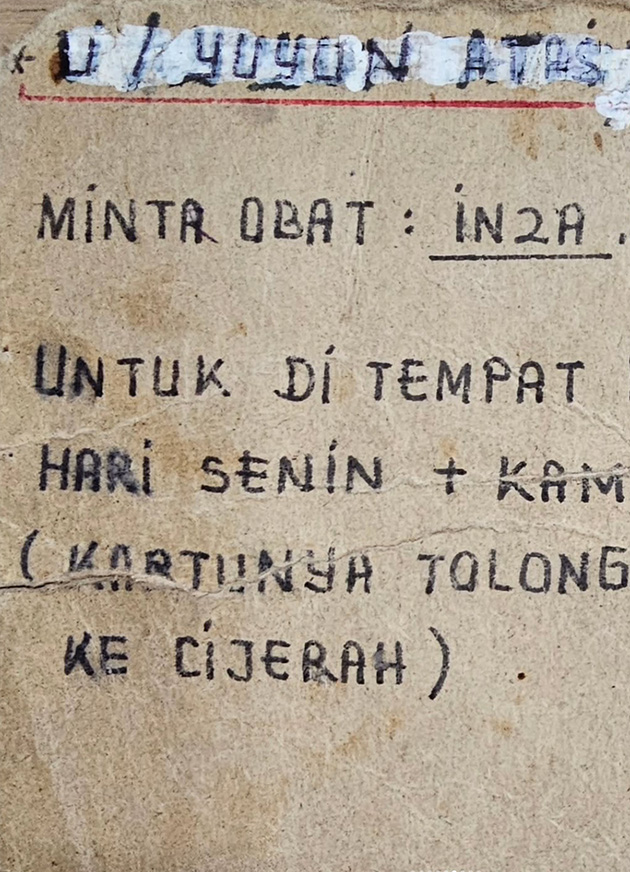 U/ YUYUN ATAS
MINTA OBAT : IN2A.
UNTUK DI TEMPAT
HARI SENIN + KAM
( KARTUNYA TOLONG
KE CIJERAH )